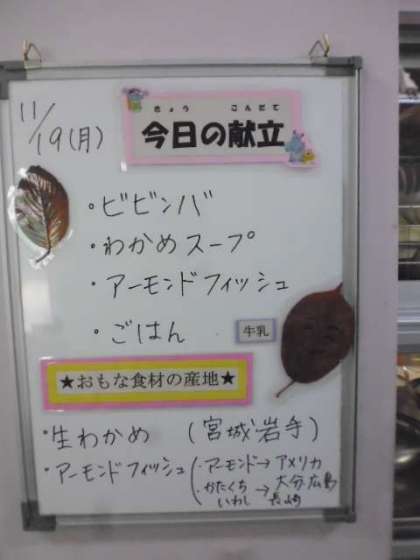 11/19(月)
きょう こんだて
今日の献立
・ビビンバ
・わかめスープ
・アーモンドフィッシュ
・ごはん 牛乳
★おもな食材の産地★
・生わかめ (宮城岩手)
・アーモンドフィッシュ(・アーモンド→アメリカ
・かたくちいわし→大分広島
長崎